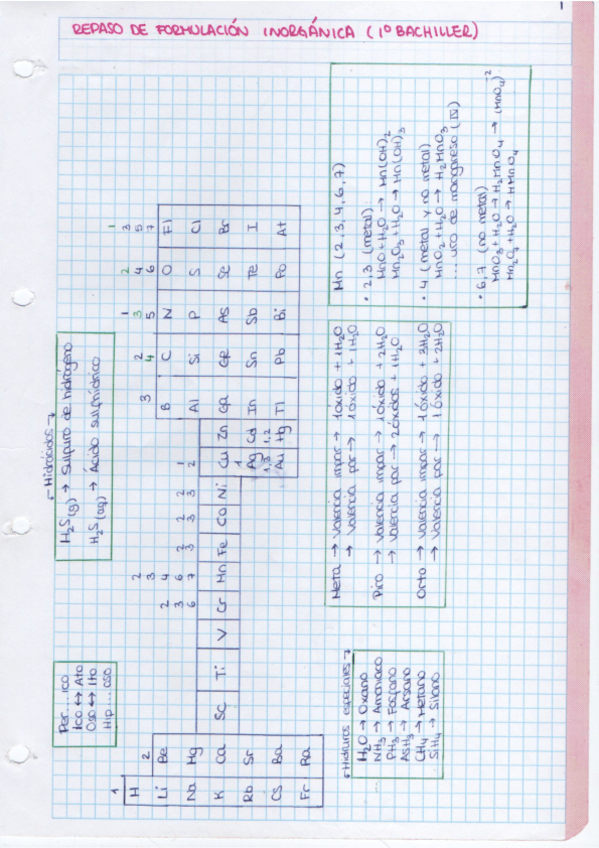 1
REPASO DE FORMULACIÓN INORGÁNICA (1º BACHILLER)
Per....ico
Ico ↔ Ato
Oso ↔ Ito
Hip...oso
Hidrácidos
H₂S(g) → Sulfuro de hidrógeno
H₂S(aq) → Ácido sulfhídrico
1
H
Li
Na
K
Rb
Cs
Fr
2
Be
Mg
Ca
Sr
Ba
Ra
Sc
Ti
V
2
3
6
Cr
2
3
4
6
7
Mn
2
3
Fe
2
3
Co
2
3
Ni
1
2
Cu
1
Ag
1,3
Au
Zn
Cd
1,2
Hg
3
B
Al
Ga
In
Tl
2
4
C
Si
Ge
Sn
Pb
1
3
5
N
P
As
Sb
Bi
2
4
6
O
S
Se
Te
Po
1
3
5
7
Fl
Cl
Br
I
At
Hidruros especiales
H₂O → Oxano
NH₃ → Amoniaco
PH₃ → Fosfano
AsH₃ → Arsano
CH₄ → Metano
SiH₄ → Silano
Meta → Valencia impar → 1 óxido + 1H₂O
→ Valencia par → 1 óxido + 1H₂O
Piro → Valencia impar → 1 óxido + 2H₂O
→ Valencia par → 2 óxidos + 1H₂O
Orto → Valencia impar → 1 óxido + 3H₂O
→ Valencia par → 1 óxido + 2H₂O
Mn (2,3,4,6,7)
• 2,3 (metal)
MnO + H₂O → Mn(OH)₂
Mn₂O₃ + H₂O → Mn(OH)₃
• 4 (metal y no metal)
MnO₂ + H₂O → H₂MnO₃
...uro de manganeso (IV)
• 6,7 (no metal)
MnO₃ + H₂O → H₂MnO₄ → (MnO₄)⁻²
Mn₂O₇ + H₂O → HMnO₄